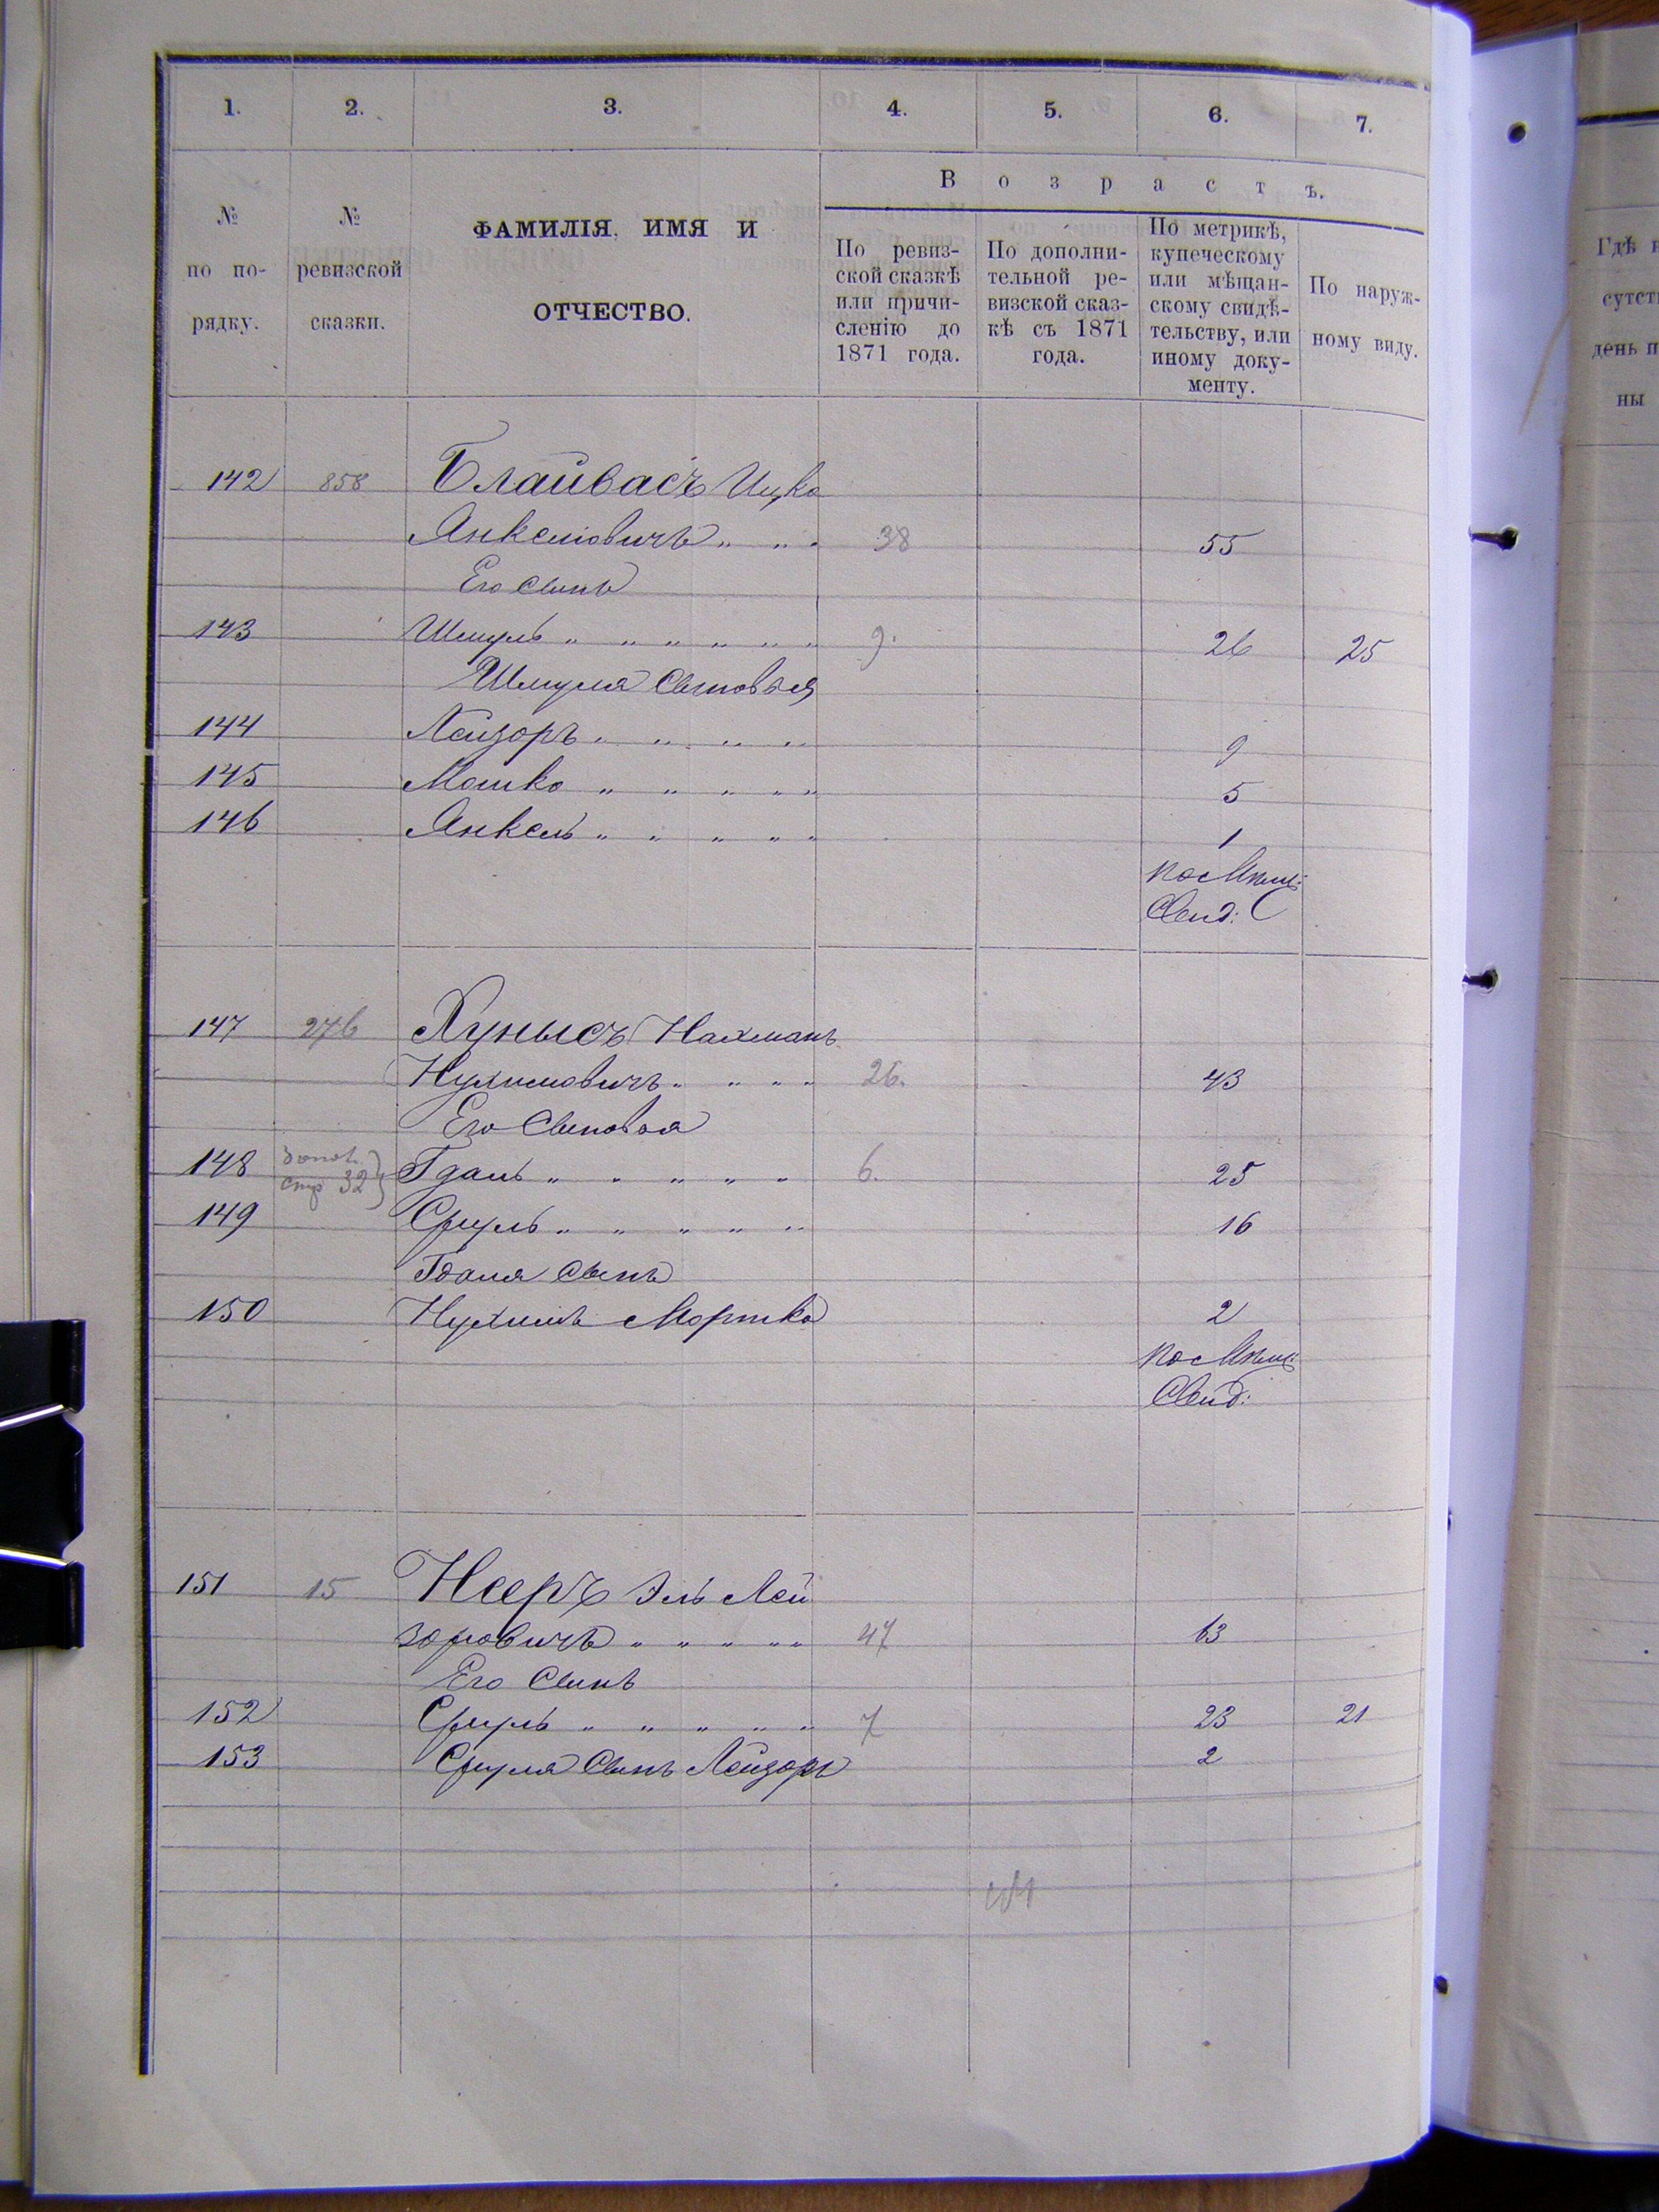 1. 2. 3. 4. 5. 6. 7.
В о з р а с т ъ.
№ по по-рядку.
№ ревизской сказки.
ФАМИЛІЯ, ИМЯ И
ОТЧЕСТВО.
По ревиз-
ской сказкѣ
или причи-
сленію до
1871 года.
По дополни-
тельной ре-
визской сказ-
кѣ съ 1871
года.
По метрикѣ,
купеческому
или мѣщан-
скому свидѣ-
тельству, или
иному доку-
менту.
По наруж-
ному виду.
142 858 Блайвасъ Ицко
Янкелiовичъ " " " 38 55
Его сынъ
143 Шмуль " " " " " " 9. 26 25
Шмуля Сыновья
144 Лейзоръ " " " " 9
145 Мошко " " " " " 5
146 Янкель " " " " " 1
по Мѣщ:
Свид:
147 276 Хунысъ Нахманъ
Нухимовичъ " " " " 26. 43
Его Сыновья
148 стр 32 Гдаль " " " " " 6. 25
149 Сруль " " " " " 16
Гдаля Сынъ
150 Нухимъ Мортко 2
по Мѣщ:
Свид:
151 15 Нееръ Эль Лей
зоровичъ " " " " " 47 63
Его Сынъ
152 Сруль " " " " " 7 23 21
153 Сруля Сынъ Лейзоръ 2
Гдѣ
сутст
день п
ны